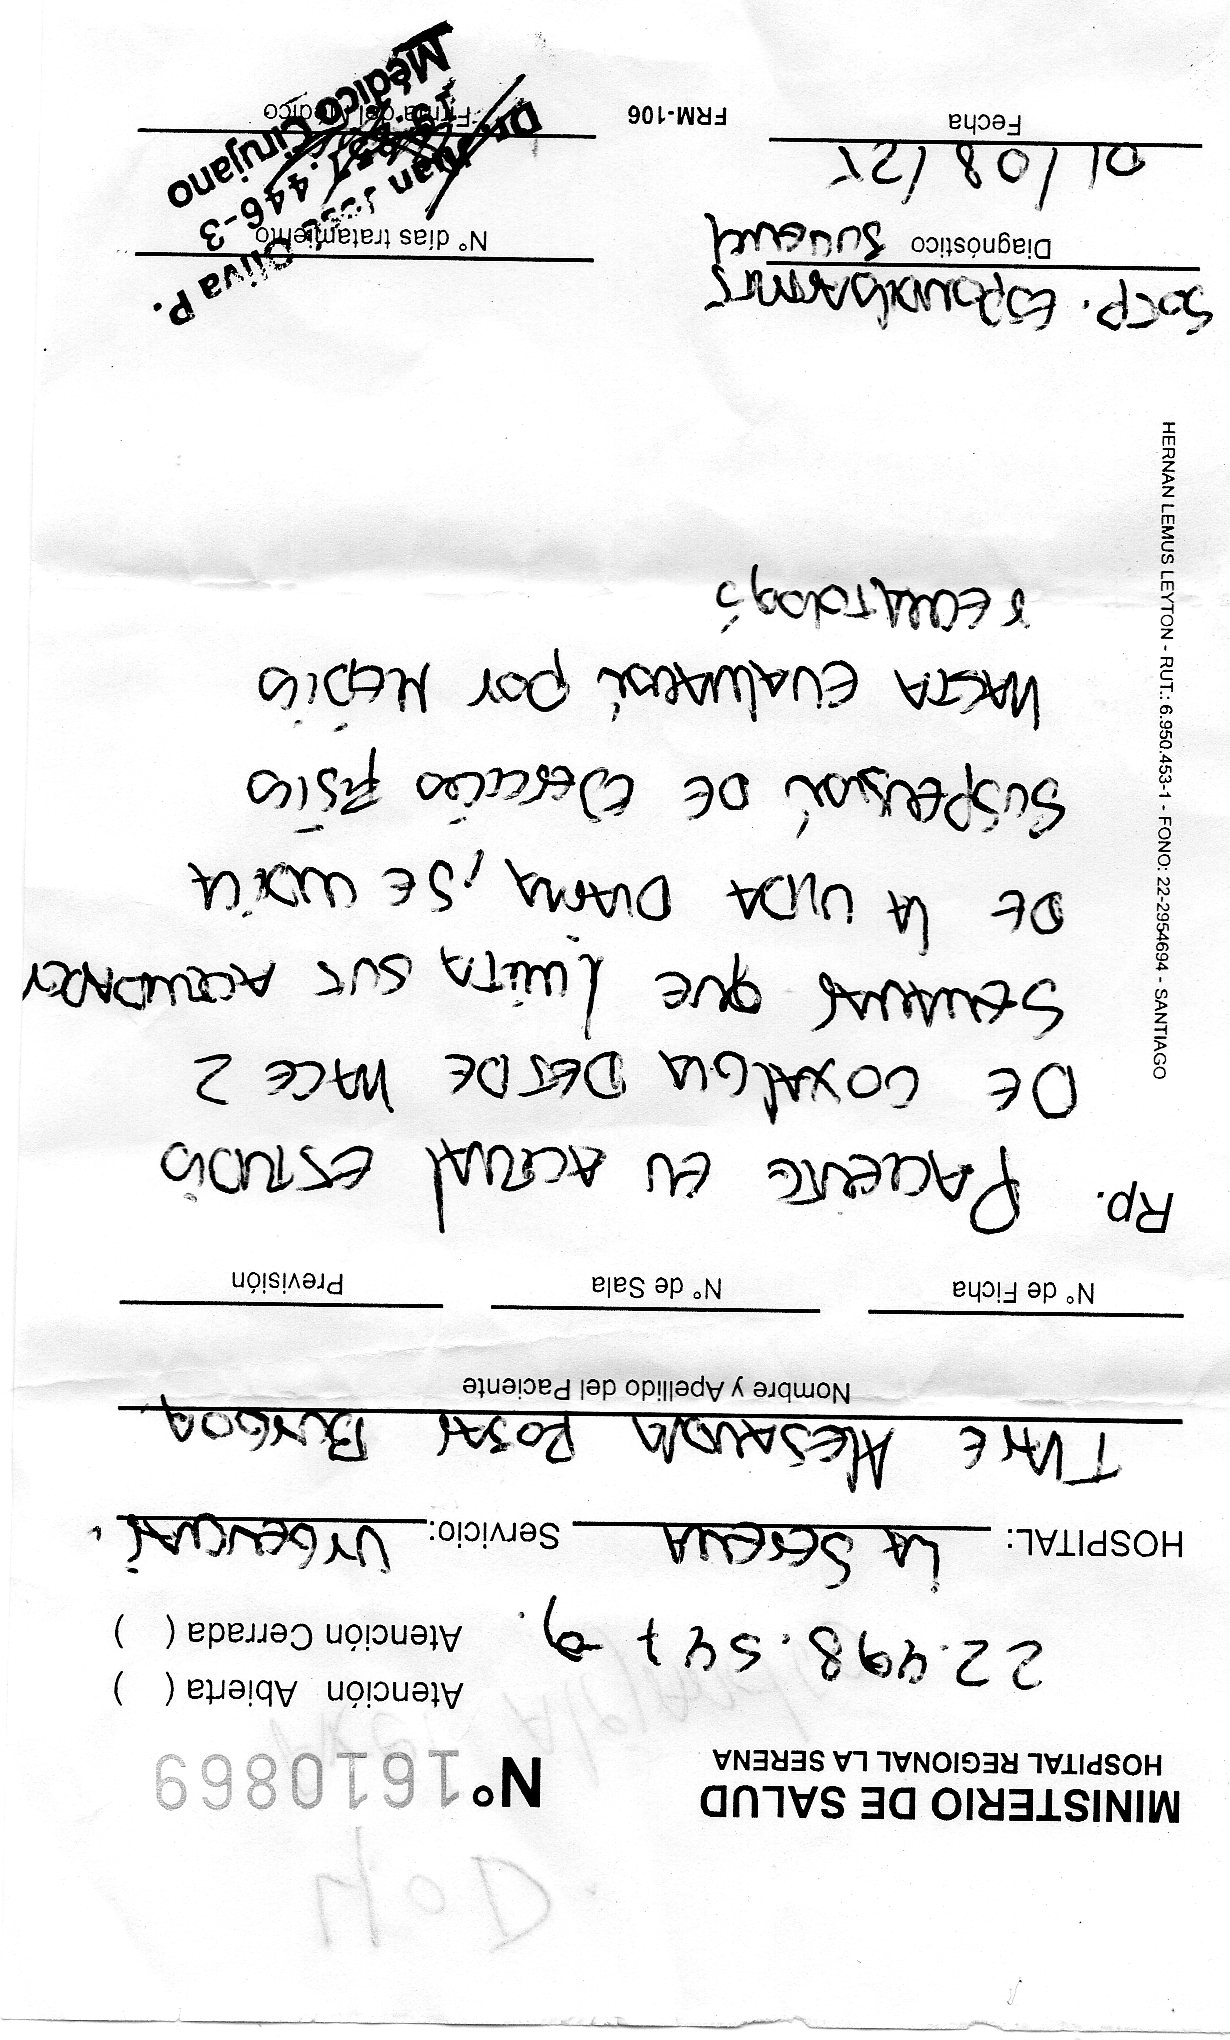 MINISTERIO DE SALUD
HOSPITAL REGIONAL LA SERENA
N° 1610869
22.498.547-9.
Atención Abierta ( )
Atención Cerrada ( )
HOSPITAL: LA SERENA Servicio: URGENCIAS.
ALESANDRA ROJAS
Nombre y Apellido del Paciente
N° de Ficha N° de Sala Previsión
Rp. PACIENTE EN ACTUAL ESTUDIO
DE COXALGIA DESDE HACE 2
SEMANAS QUE LIMITA SUS ACTIVIDADES
DE LA VIDA DIARIA, SE INDICA
SUSPENSIÓN DE EJERCICIO FÍSICO
HASTA EVALUACIÓN POR MÉDICO
REUMATÓLOGO
HERNAN LEMUS LEYTON - RUT.: 6.950.453-1 - FONO: 22-2954694 - SANTIAGO
SOSP. ESPONDILOARTRITIS
Diagnóstico
N° días tratamiento
01/08/25
Fecha
FRM-106
Firma del Médico
Dr. Juan José Oliva P.
446-3
Médico Cirujano